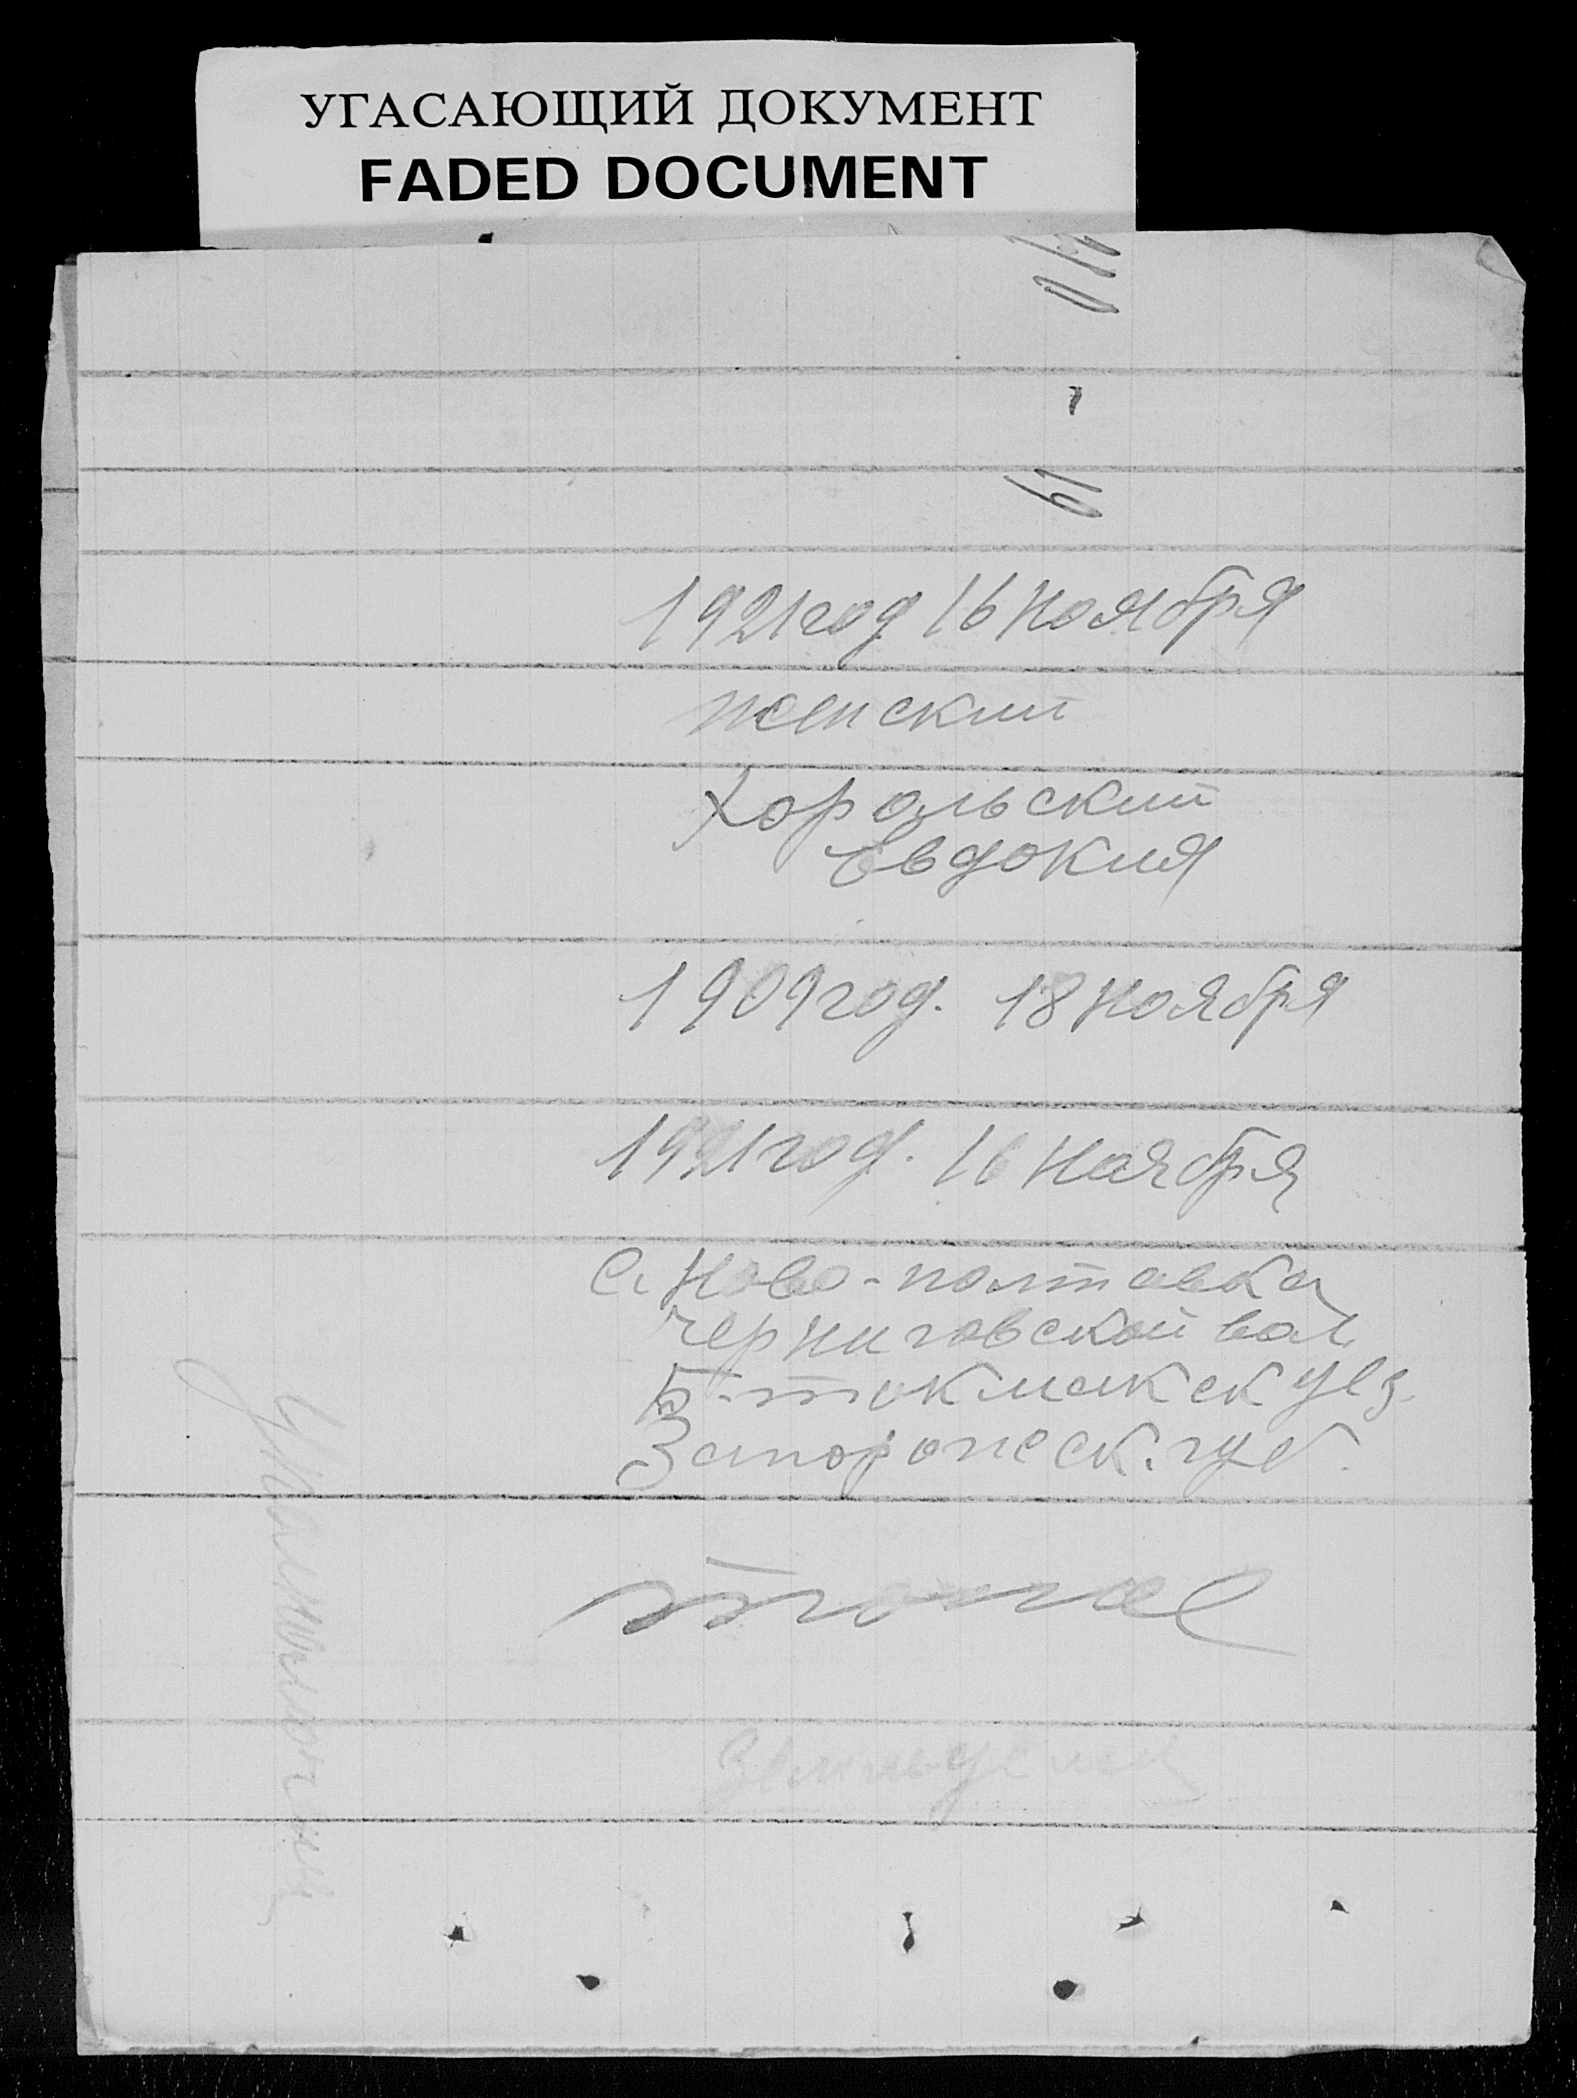 УГАСАЮЩИЙ ДОКУМЕНТ
FADED DOCUMENT
1921 год 16 Ноября
женский
Хорольский
Евдокия
1909 год. 18 Ноября
1921 год. 16 Ноября
С. Ново-полтавка
Черниговской вол.
Б-токмакск уез.
Запорожск. губ.
тоже